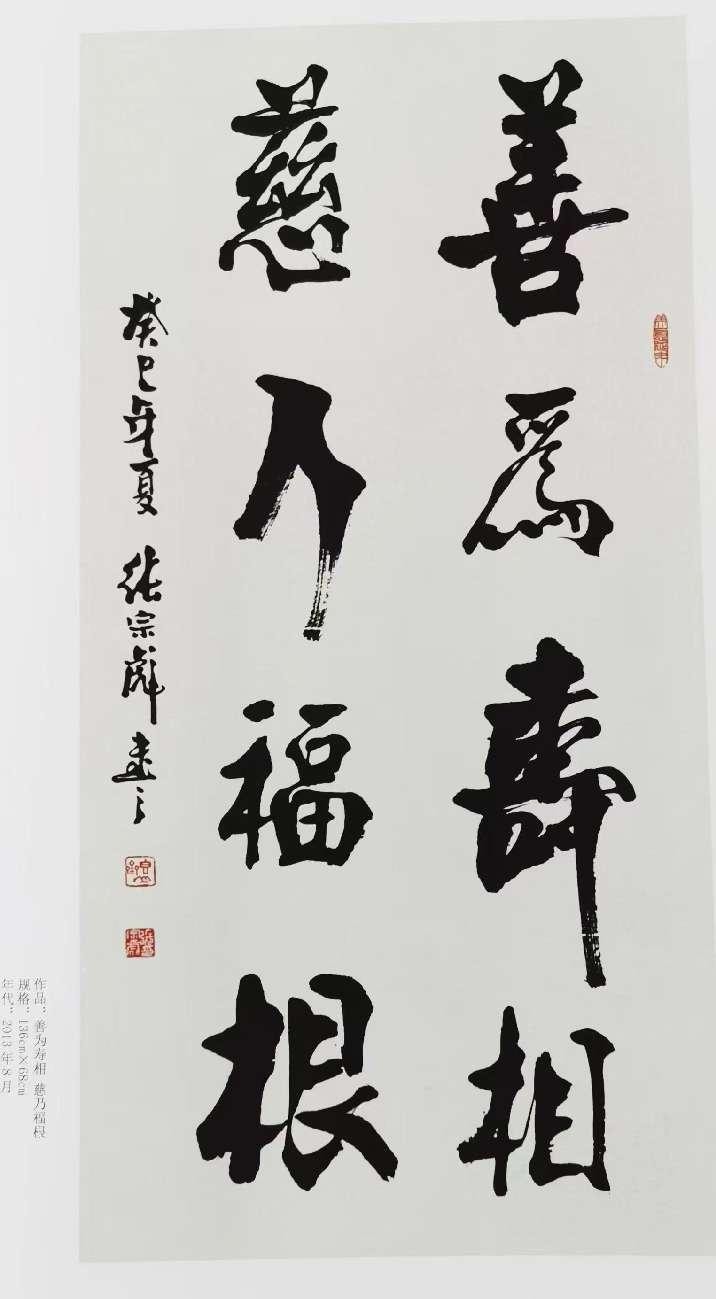 善爲壽相
慈乃福根
癸巳年夏 張宗彪書
作品：善为寿相 慈乃福根
规格：136cm×68cm
年代：2013年8月